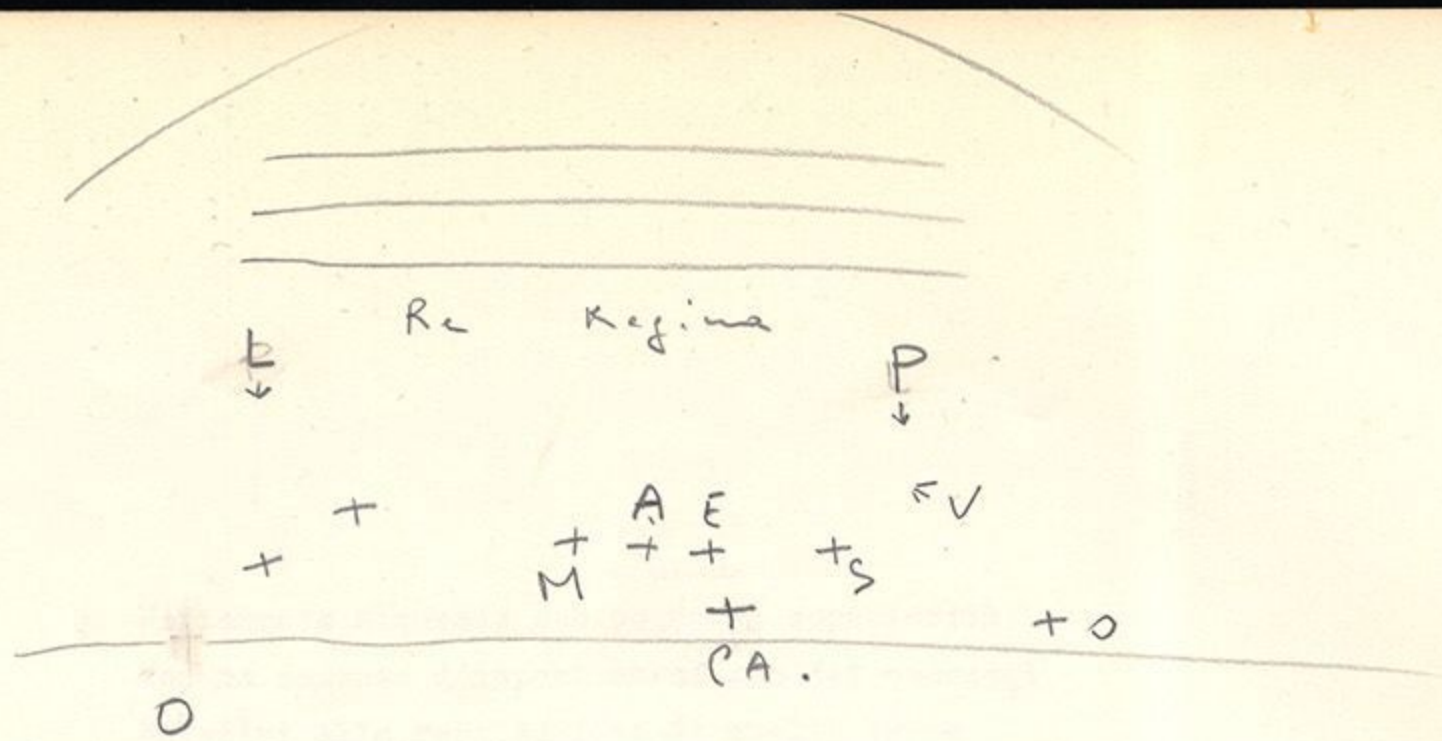 Re Regina
L P
A E V
M S
CA. O
O